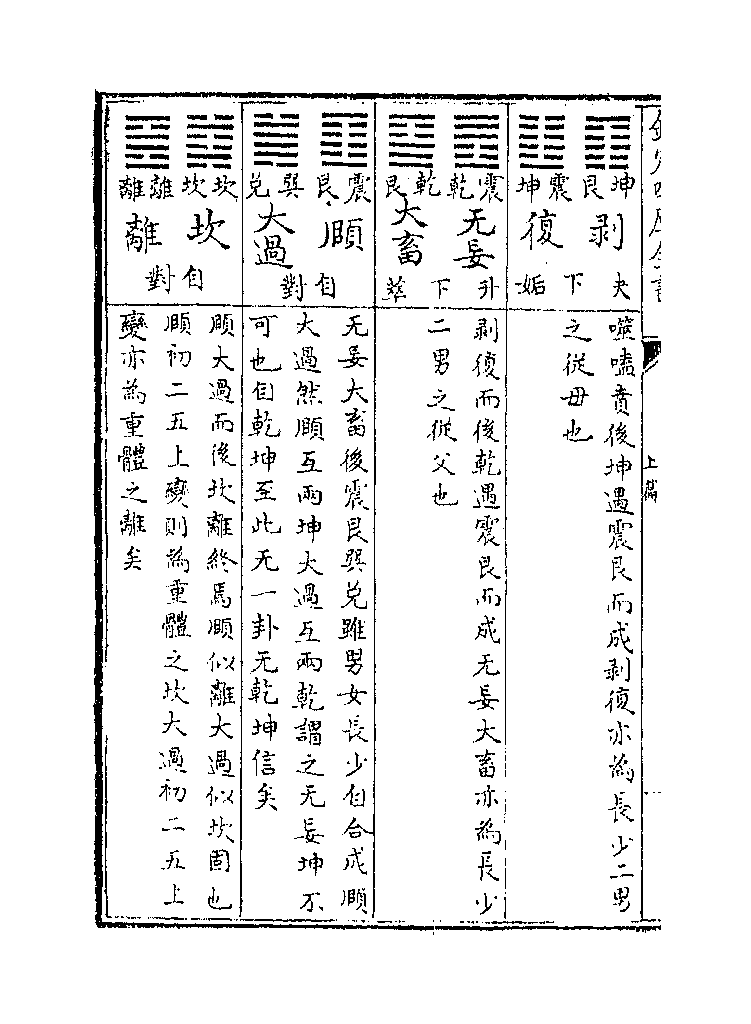 上篇
坤艮震坤
剥 復
夬下姤
噬嗑賁後坤遇震艮而成剥復亦為長少二男
之從母也
震乾乾艮
无妄 大畜
升下萃
剥復而後乾遇震艮而成无妄大畜亦為長少
二男之從父也
震艮巽兌
頤 大過
自對
无妄大畜後震艮巽兌雖男女長少自合成頤
大過然頤互兩坤大過互兩乾謂之无妄坤不
可也自乾坤至此无一卦无乾坤信矣
坎坎離離
坎 離
自對
頤大過而後坎離終焉頤似離大過似坎固也
頤初二五上變則為重體之坎大過初二五上
變亦為重體之離矣